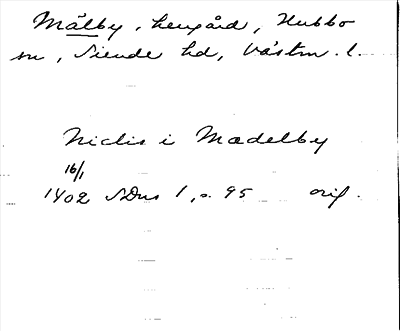 Målby, herrgård, Hubbo
sn, Siende hd, Västm. l.
Niclis i Madelby
16/1
1402 SDns 1, s. 95 orig.